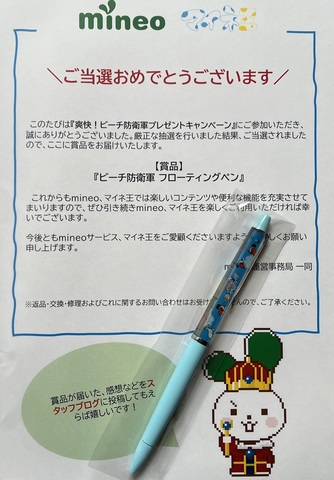 mineo マイネ王
＼ご当選おめでとうございます／
このたびは『爽快！ビーチ防衛軍プレゼントキャンペーン』にご参加いただき、
誠にありがとうございました。厳正な抽選を行いました結果、ご当選されました
ので、ここに賞品をお届けいたします。
【賞品】
『ビーチ防衛軍 フローティングペン』
これからもmineo、マイネ王では楽しいコンテンツや便利な機能を充実させて
まいりますので、ぜひ引き続きmineo、マイネ王を楽しくご利用いただければ幸
いでございます。
今後ともmineoサービス、マイネ王をご愛顧くださいますよう しくお願い
申し上げます。
運営事務局 一同
※返品・交換・修理およびこれに関するお問い合わせはお受け せんので、ご了承ください。
賞品が届いた、感想などをス
タッフブログに投稿してもえ
らば嬉しいです！